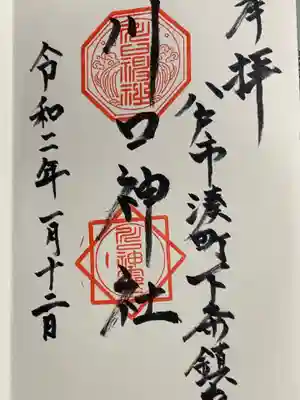 奉拝
八戸市湊町下条鎮守
川口神社
令和二年一月十二日
川口神社